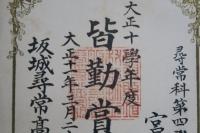 尋常科第四
宮
大正十學年度
皆勤賞
大正十一年三月二
坂城尋常高